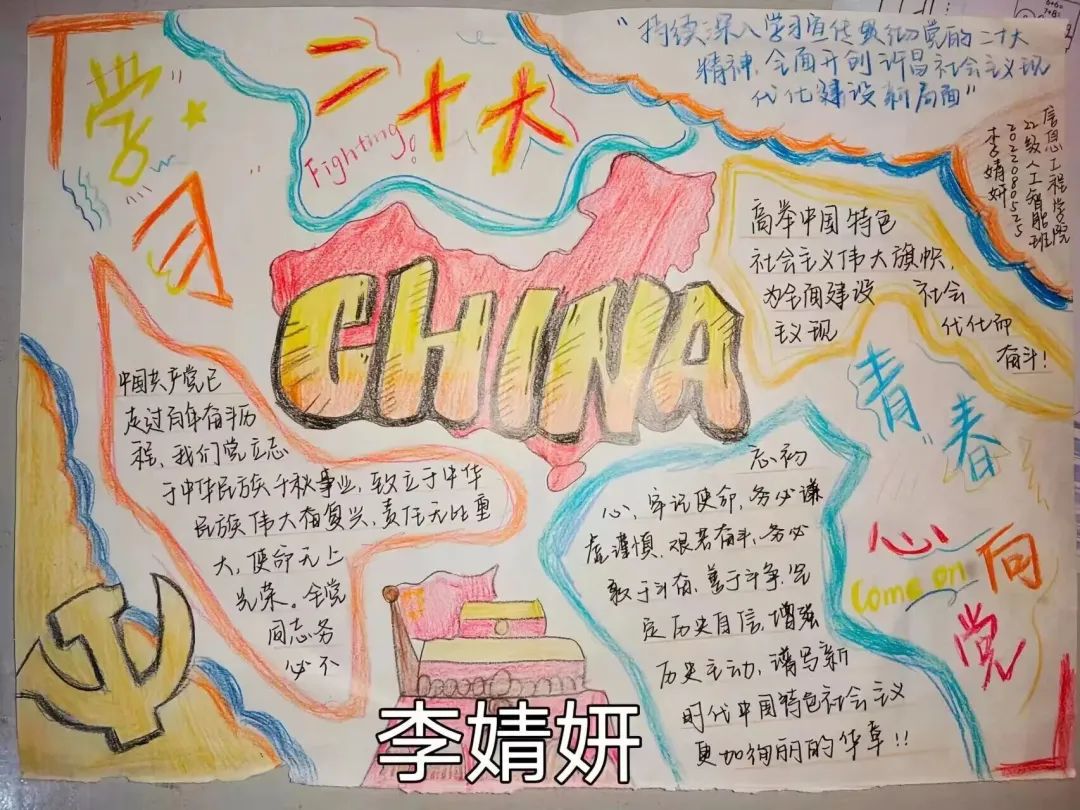 学习
二十大
Fighting!
"持续深入学习宣传贯彻党的二十大
精神，全面开创许昌社会主义现
代化建设新局面"
信息工程学院
22级人工智能班
李婧妍
CHINA
高举中国特色
社会主义伟大旗帜，
为全面建设 社会
主义现 代化而
奋斗！
中国共产党已
走过百年奋斗历
程，我们党立志
于中华民族千秋事业，致立于中华
民族伟大奋复兴，责任无比重
大，使命无上
光荣。全党
同志务
必不
忘初
心，牢记使命，务必谦
虚谨慎，艰苦奋斗，务必
敢于斗奋，善于斗争，坚
定历史自信，增强
历史主动，谱写新
时代中国特色社会主义
更加绚丽的华章！！
青春
心向
Come on
党
李婧妍